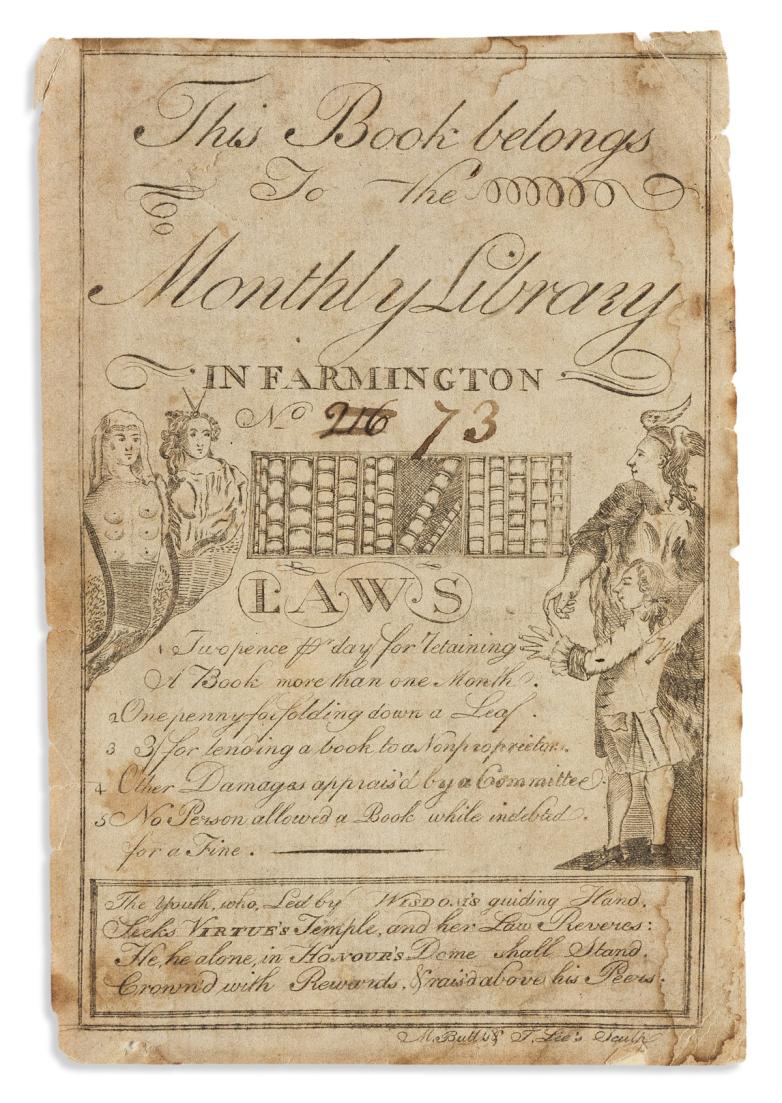 This Book belongs
To the
Monthly Library
IN FARMINGTON
No 216 73
LAWS
1 Two pence pr day for retaining
A Book more than one Month.
2 One penny for folding down a Leaf.
3 3/ for lending a book to a Nonproprietor.
4 Other Damages apprais'd by a Committee.
5 No Person allowed a Book while indebted
for a Fine.
The Youth, who, Led by WISDOM'S guiding Hand,
Seeks VIRTUE'S Temple, and her Law Reveres:
He, he alone, in HONOUR'S Dome shall Stand,
Crown'd with Rewards, & rais'd above his Peers.
M. Bull's & T. Lee's Sculp